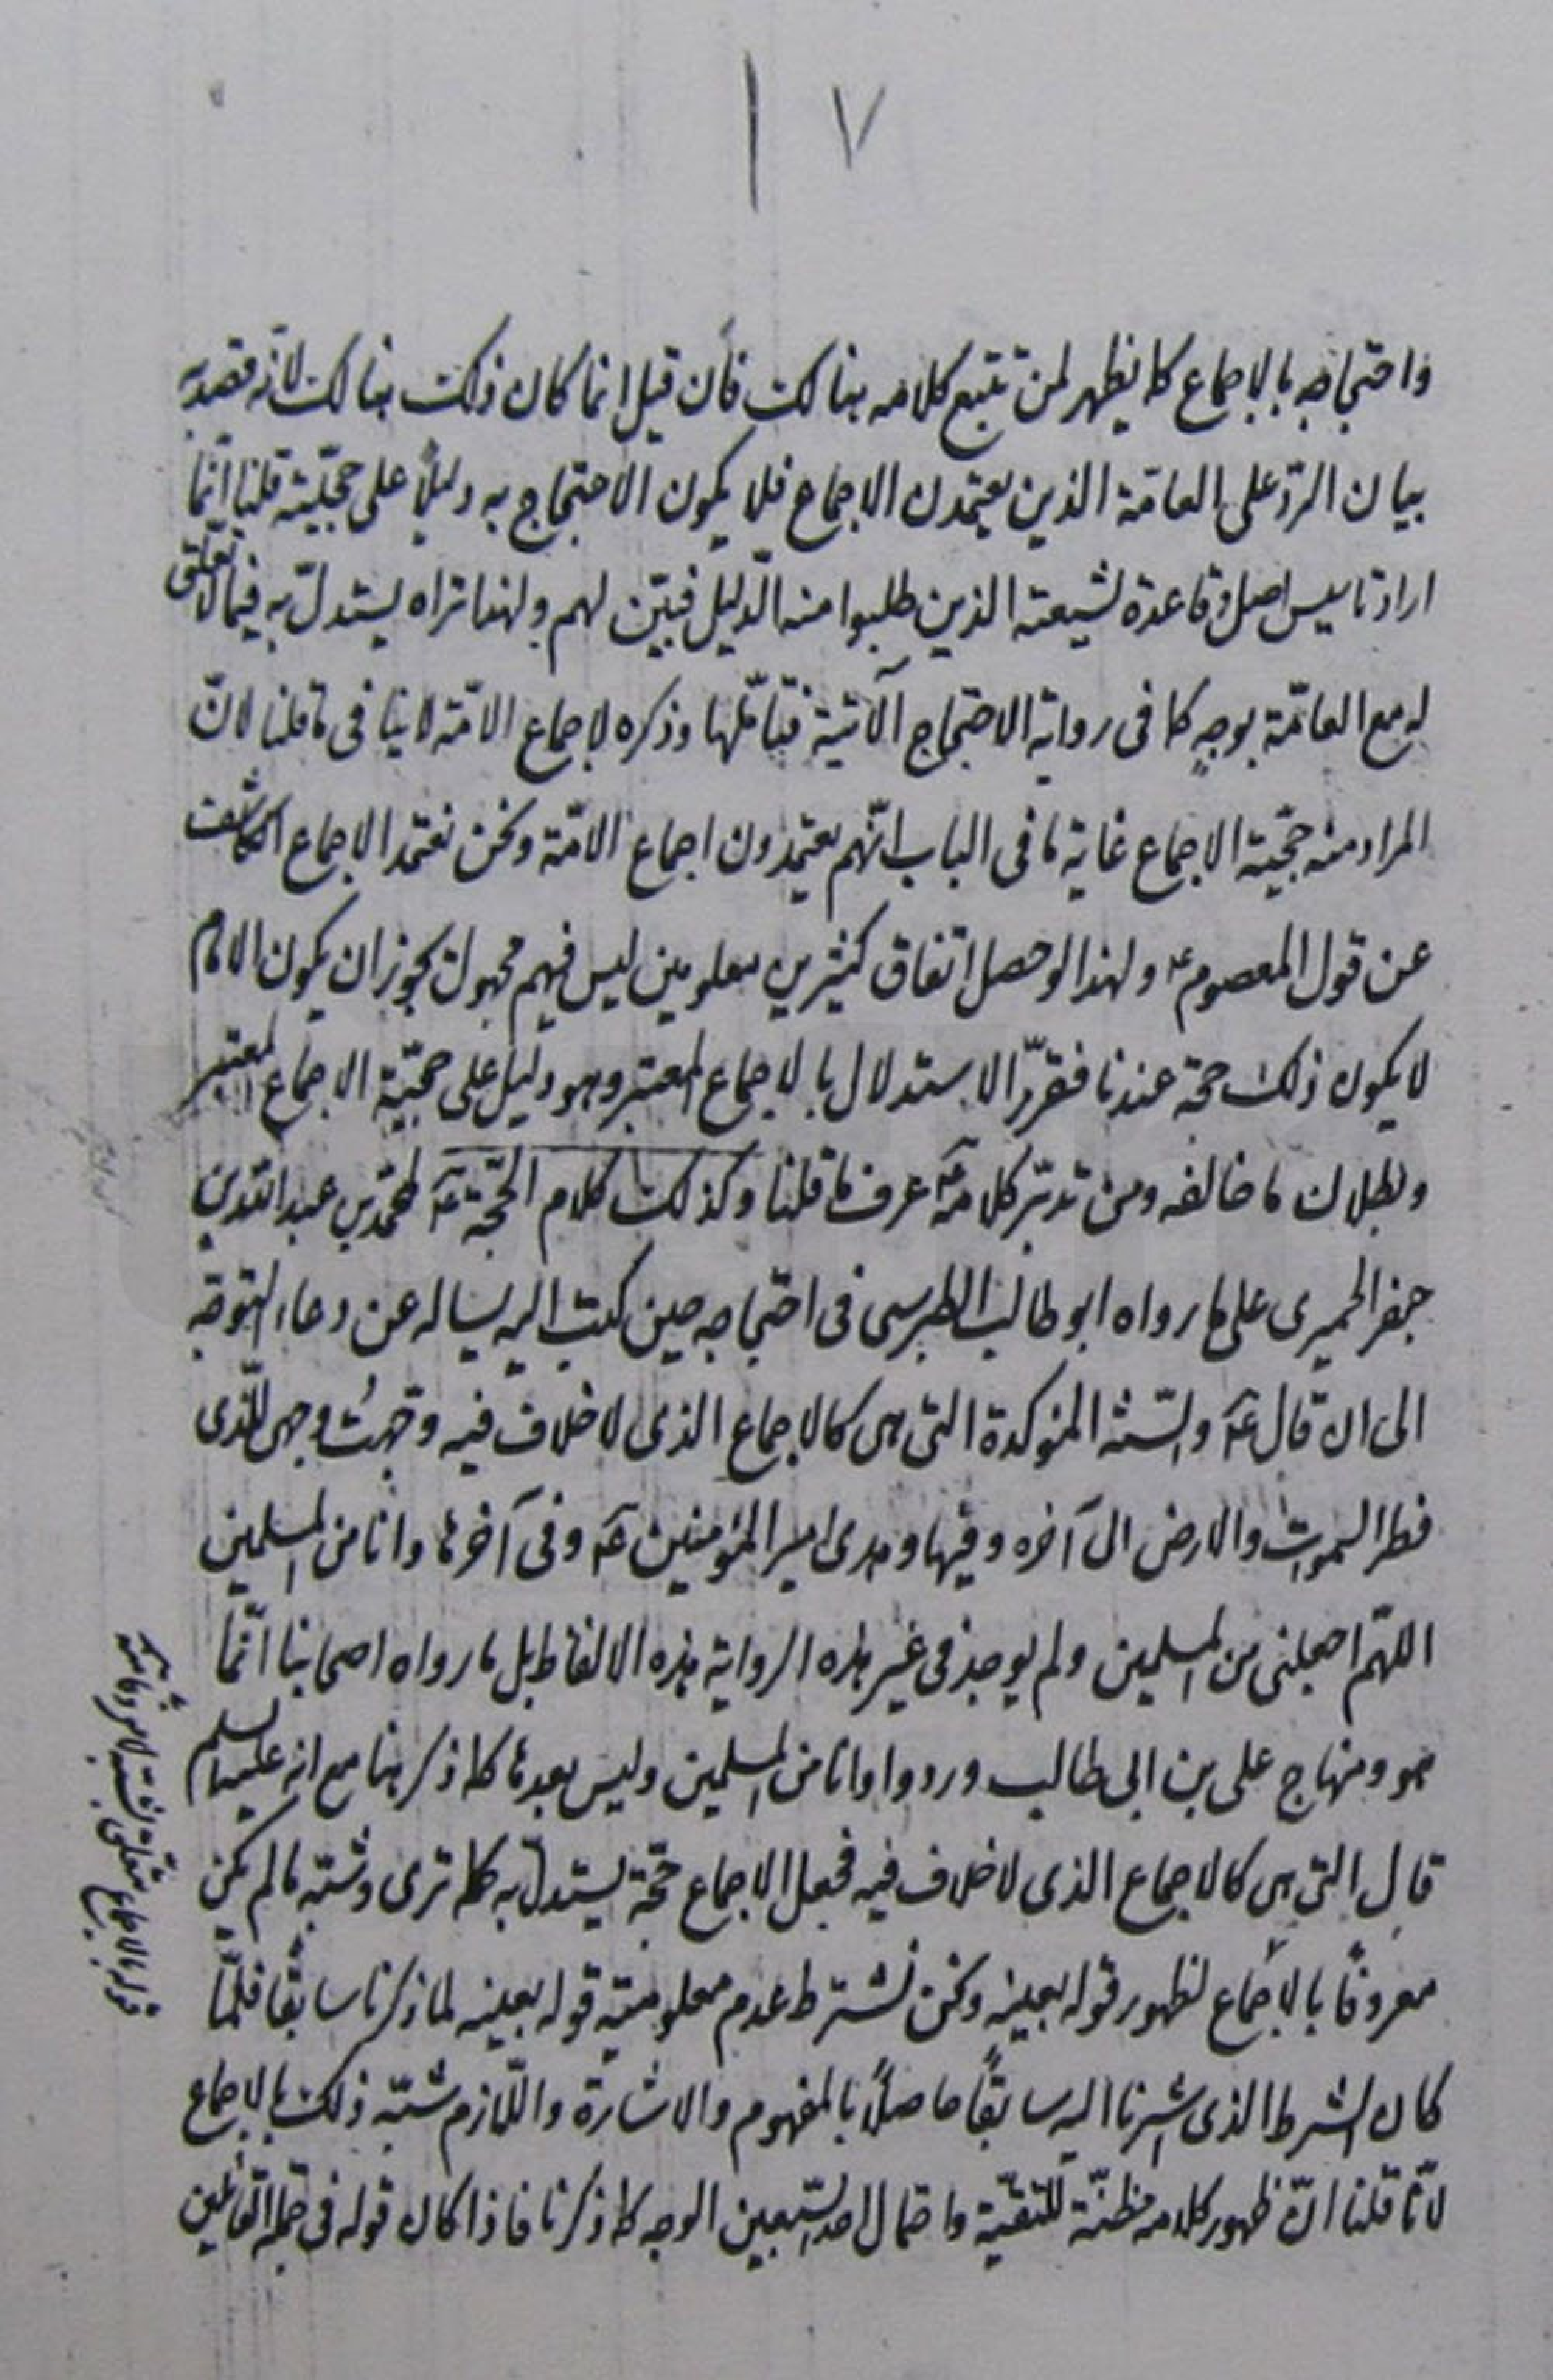 ١٧
واحتجاجه بالاجماع كما يظهر لمن تتبع كلامه هنالك فأن قيل انما كان ذلك هنالك لانه قصد به
بيان الردّ على العامّة الذين يعتمدن الاجماع فلا يكون الاحتجاج به دليلاً على حجّيّته قلنا انّما
اراد تاسيس اصل وقاعدة لشيعته الذين طلبوا منه الدّليل فبيّن لهم ولهذا تراه يستدلّ به فيما لا تعلّق
له مع العامّة بوجهٍ كما فى رواية الاحتجاج الآتية فتأمّلها وذكره لاجماع الامّة لا ينافى ما قلنا لانّ
المراد منه حجّية الاجماع غاية ما فى الباب انّهم يعتمدون اجماع الامّة ونحن نعتمد الاجماع الكاشف
عن قول المعصوم ع ولهذا لو حصل اتفاق كثيرين معلومين ليس فيهم مجهول يجوز ان يكون الامام
لا يكون ذلك حجة عندنا فقرّر الاستدلال بالاجماع المعتبر وهو دليل على حجّيّة الاجماع المعتبر
وبطلان ما خالفه ومن تدبّر كلامه ع عرف ما قلنا وكذلك كلام الحجّة ع لمحمّد بن عبد الله بن
جعفر الحميرى على ما رواه ابو طالب الطبرسى فى احتجاجه حين كتب اليه يساله عن دعاء التوجّه
الى ان قال ع والسّنّة المؤكدة التى هى كالاجماع الذى لا خلاف فيه وجّهتُ وجهى للّذى
فطر السموات والارض الى آخره وفيها وهدى امير المؤمنين ع وفى آخرها وانا من المسلمين
اللهّم اجعلنى من المسلمين ولم يوجد فى غير هذه الرواية هذه الالفاظ بل ما رواه اصحابنا انّما
هو ومنهاج على بن ابى طالب ورووا وانا من المسلمين وليس بعدها كما ذكر هنا مع انه عليه السلم
قال التى هى كالاجماع الذى لا خلاف فيه فجعل الاجماع حجّة يستدلّ به كما ترى وشبّه ما لم يكن
معروفًا بالاجماع لظهور قوله بعينه ونحن نشترط عدم معلوميّة قوله بعينه لما ذكرنا سابقًا فلمّا
كان الشرط الذى اشرنا اليه سابقًا حاصلاً بالمفهوم والاشارة واللّازم شبّه ذلك بالاجماع
لانّا قلنا انّ ظهور كلامه مظنّة للتقيّة واحتمال احد السّبعين الوجه كما ذكرنا فاذا كان قوله فى جملة القائلين